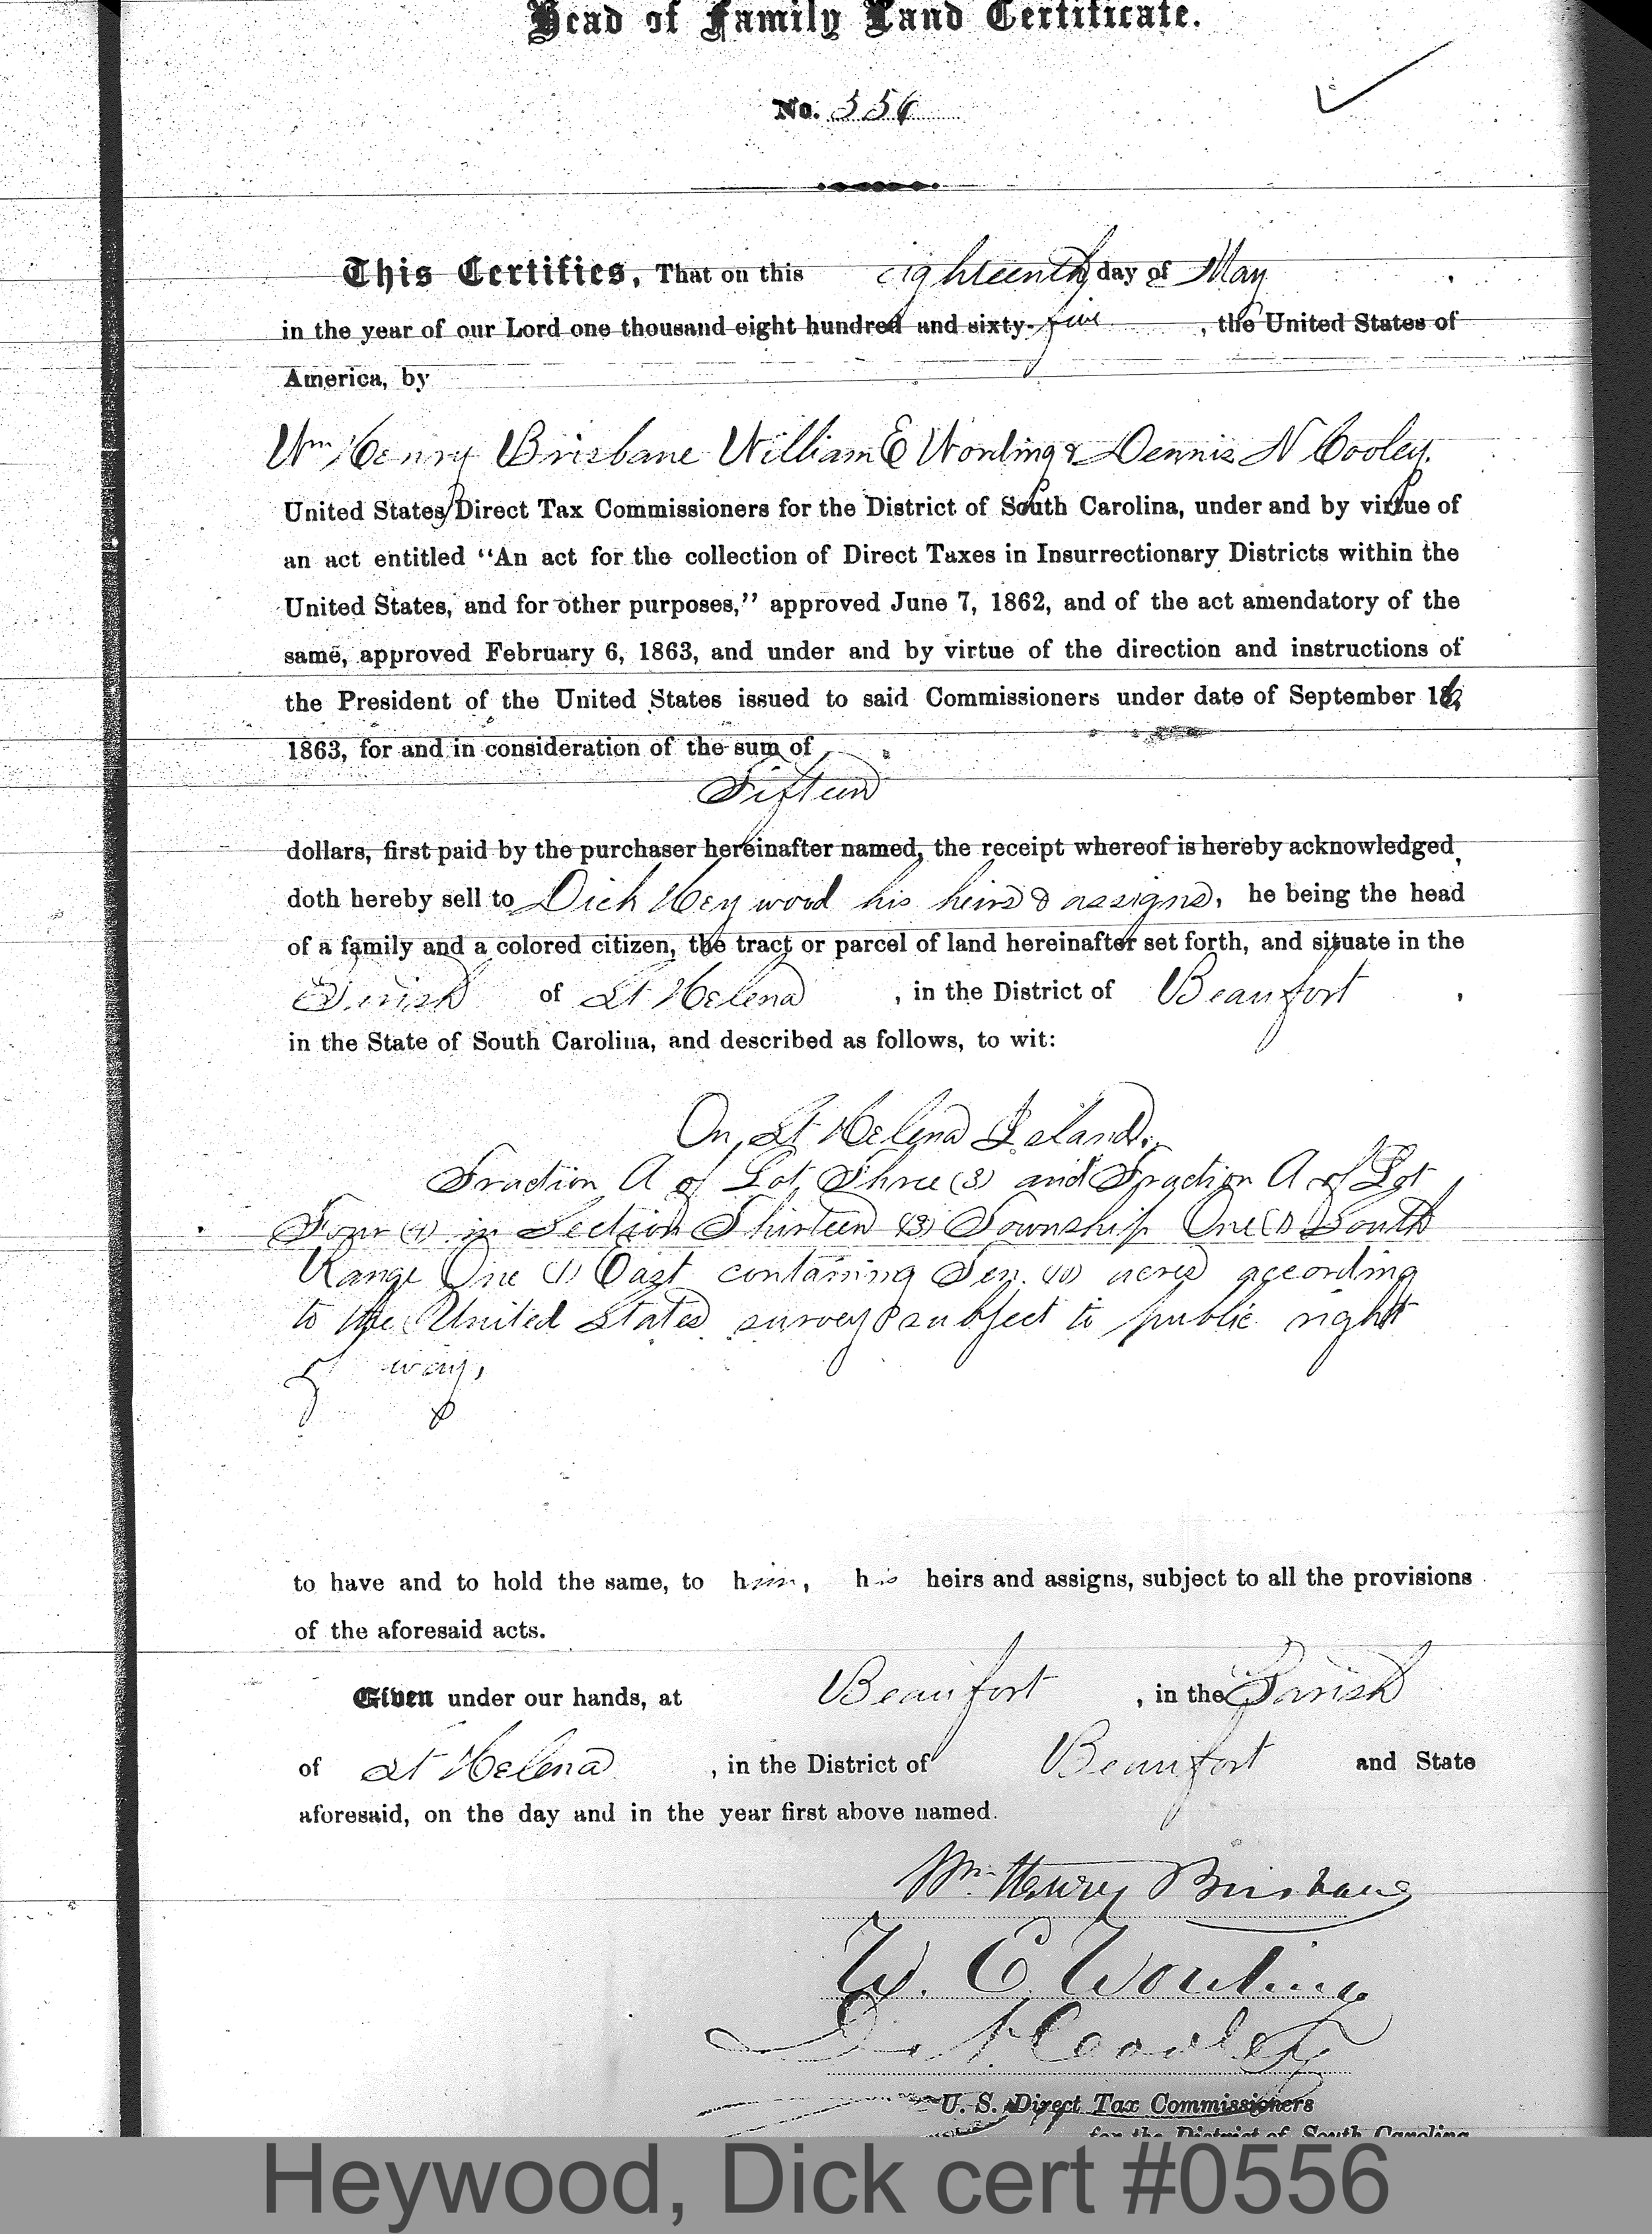 Head of Family Land Certificate.
No. 556
This Certifies, That on this eighteenth day of May
in the year of our Lord one thousand eight hundred and sixty-five, the United States of
America, by
Wm Henry Brisbane William E Wording & Dennis N Cooley.
United States Direct Tax Commissioners for the District of South Carolina, under and by virtue of
an act entitled "An act for the collection of Direct Taxes in Insurrectionary Districts within the
United States, and for other purposes," approved June 7, 1862, and of the act amendatory of the
same, approved February 6, 1863, and under and by virtue of the direction and instructions of
the President of the United States issued to said Commissioners under date of September 16,
1863, for and in consideration of the sum of
Fifteen
dollars, first paid by the purchaser hereinafter named, the receipt whereof is hereby acknowledged,
doth hereby sell to Dick Heywood his heirs & assigns, he being the head
of a family and a colored citizen, the tract or parcel of land hereinafter set forth, and situate in the
Parish of St Helena, in the District of Beaufort,
in the State of South Carolina, and described as follows, to wit:
On St Helena Island.
Fraction A of Lot Three (3) and Fraction A of Lot
Four (4) in Section Thirteen (13) Township One (1) South
Range One (1) East containing Ten (10) acres according
to the United States survey & subject to public right
of way,
to have and to hold the same, to him, his heirs and assigns, subject to all the provisions
of the aforesaid acts.
Given under our hands, at Beaufort, in the Parish
of St Helena, in the District of Beaufort and State
aforesaid, on the day and in the year first above named.
Wm. Henry Brisbane
W. E. Wording
D. N. Cooley
U. S. Direct Tax Commissioners
for the District of South Carolina
Heywood, Dick cert #0556